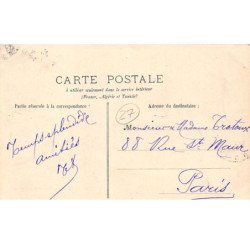 CARTE POSTALE
à utiliser seulement dans le service intérieur
(France, Algérie et Tunisie)
Partie réservée à la correspondance :
Adresse du destinataire :
27
Temps splendide
amitiés
Monsieur & Madame
88 Rue St Maur
Paris